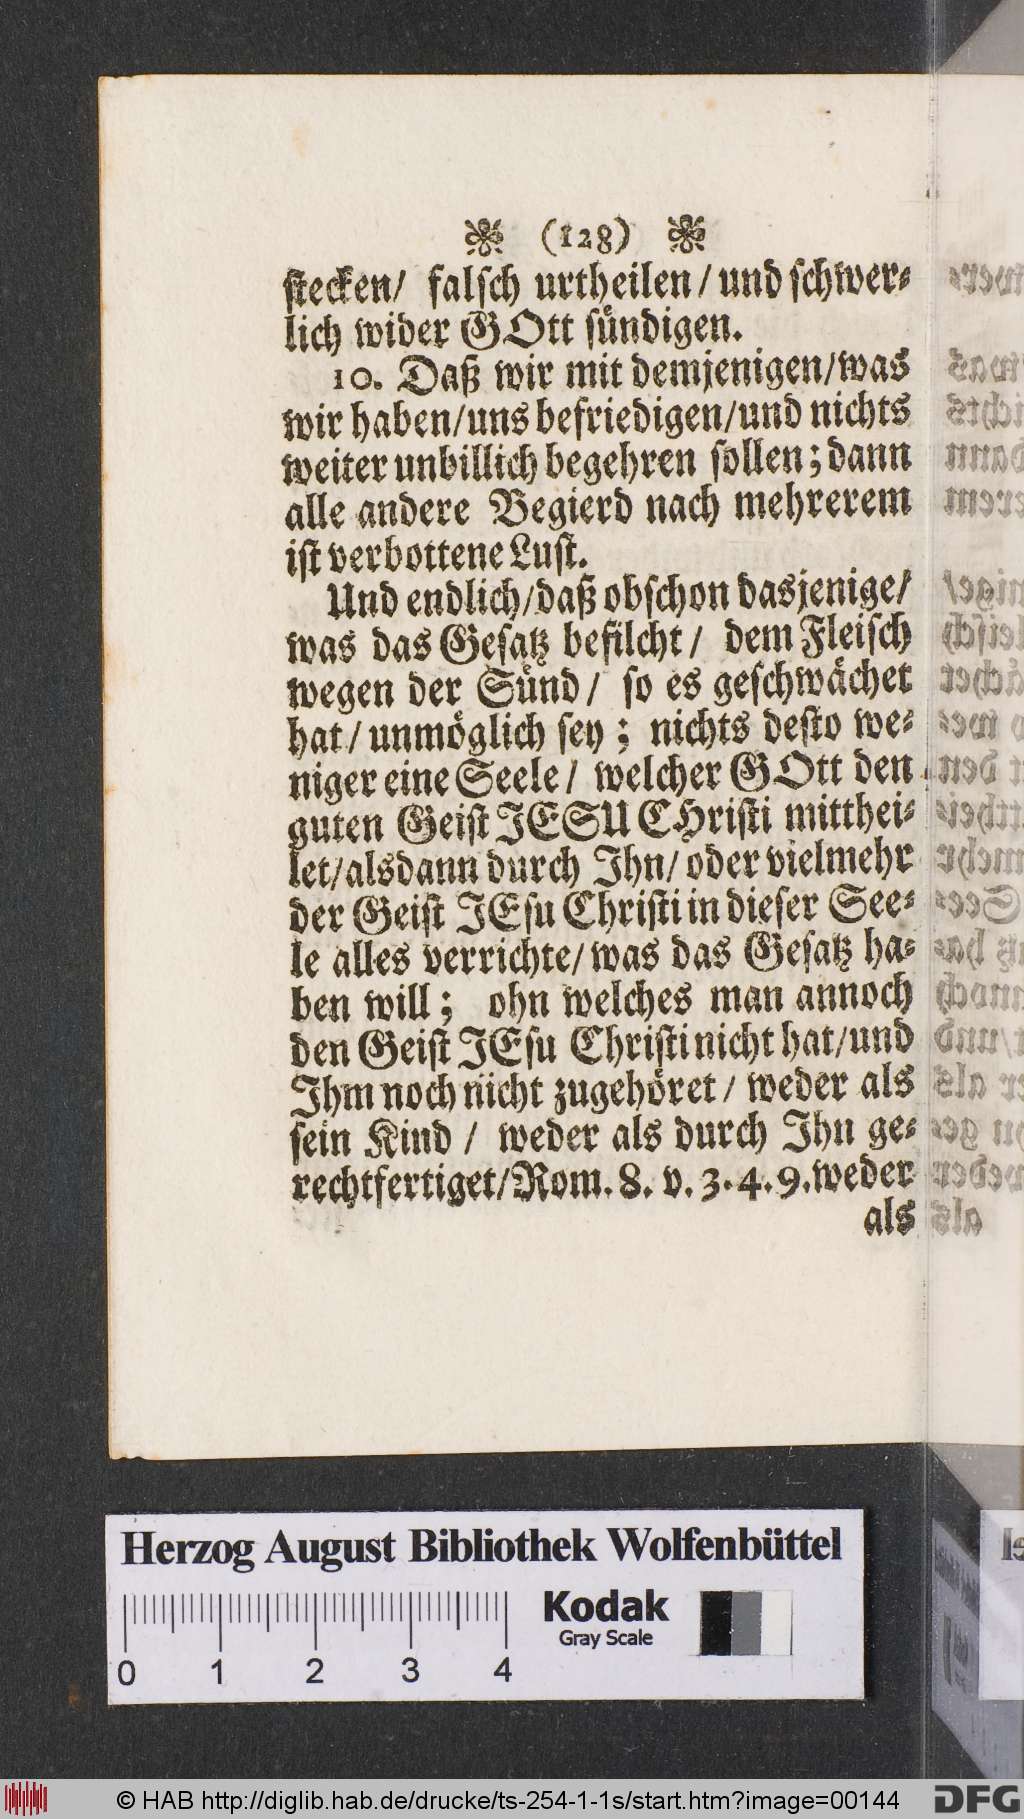 (128)
stecken/ falsch urtheilen/ und schwer⸗
lich wider GOtt sündigen.
10. Daß wir mit demjenigen/was
wir haben/uns befriedigen/und nichts
weiter unbillich begehren sollen; dann
alle andere Begierd nach mehrerem
ist verbottene Lust.
Und endlich/daß obschon dasjenige/
was das Gesatz befilcht/ dem Fleisch
wegen der Sünd/ so es geschwächet
hat/ unmöglich sey; nichts desto we⸗
niger eine Seele/ welcher GOtt den
guten Geist JESU CHristi mitthei⸗
let/alsdann durch Ihn/ oder vielmehr
der Geist JEsu Christi in dieser See⸗
le alles verrichte/was das Gesatz ha⸗
ben will; ohn welches man annoch
den Geist JEsu Christi nicht hat/und
Ihm noch nicht zugehöret/ weder als
sein Kind/ weder als durch Ihn ge⸗
rechtfertiget/Rom. 8. v. 3. 4. 9. weder
als
Herzog August Bibliothek Wolfenbüttel
Kodak
Gray Scale
0 1 2 3 4
© HAB http://diglib.hab.de/drucke/ts-254-1-1s/start.htm?image=00144
DFG